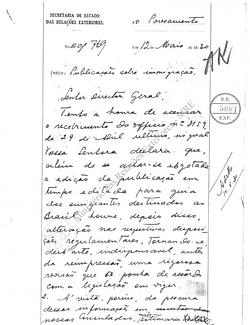 SECRETARIA DE ESTADO
DAS RELAÇÕES EXTERIORES.
AO Povoamento
Em 12 de Maio de
Publicação sobre immigração.
Senhor Director Geral,
Tenho a honra de accusar
o recebimento do officio nº
de 29 de Abril ultimo, no qual
Vossa Senhoria declara que,
além de se achar esgotada
a edição da publicação em
tempo editada para guia
dos emigrantes destinados ao
Brasil houve, depois disso,
alteração nas respectivas disposi-
ções regulamentares, tornando-se
desta arte, indispensavel, antes
da reimpressão, uma rigorosa
revisão que os ponha de accôrdo
com a legislação em vigor.
2. A vista, porém, da procura
dessas informações em
nossos Consulados,